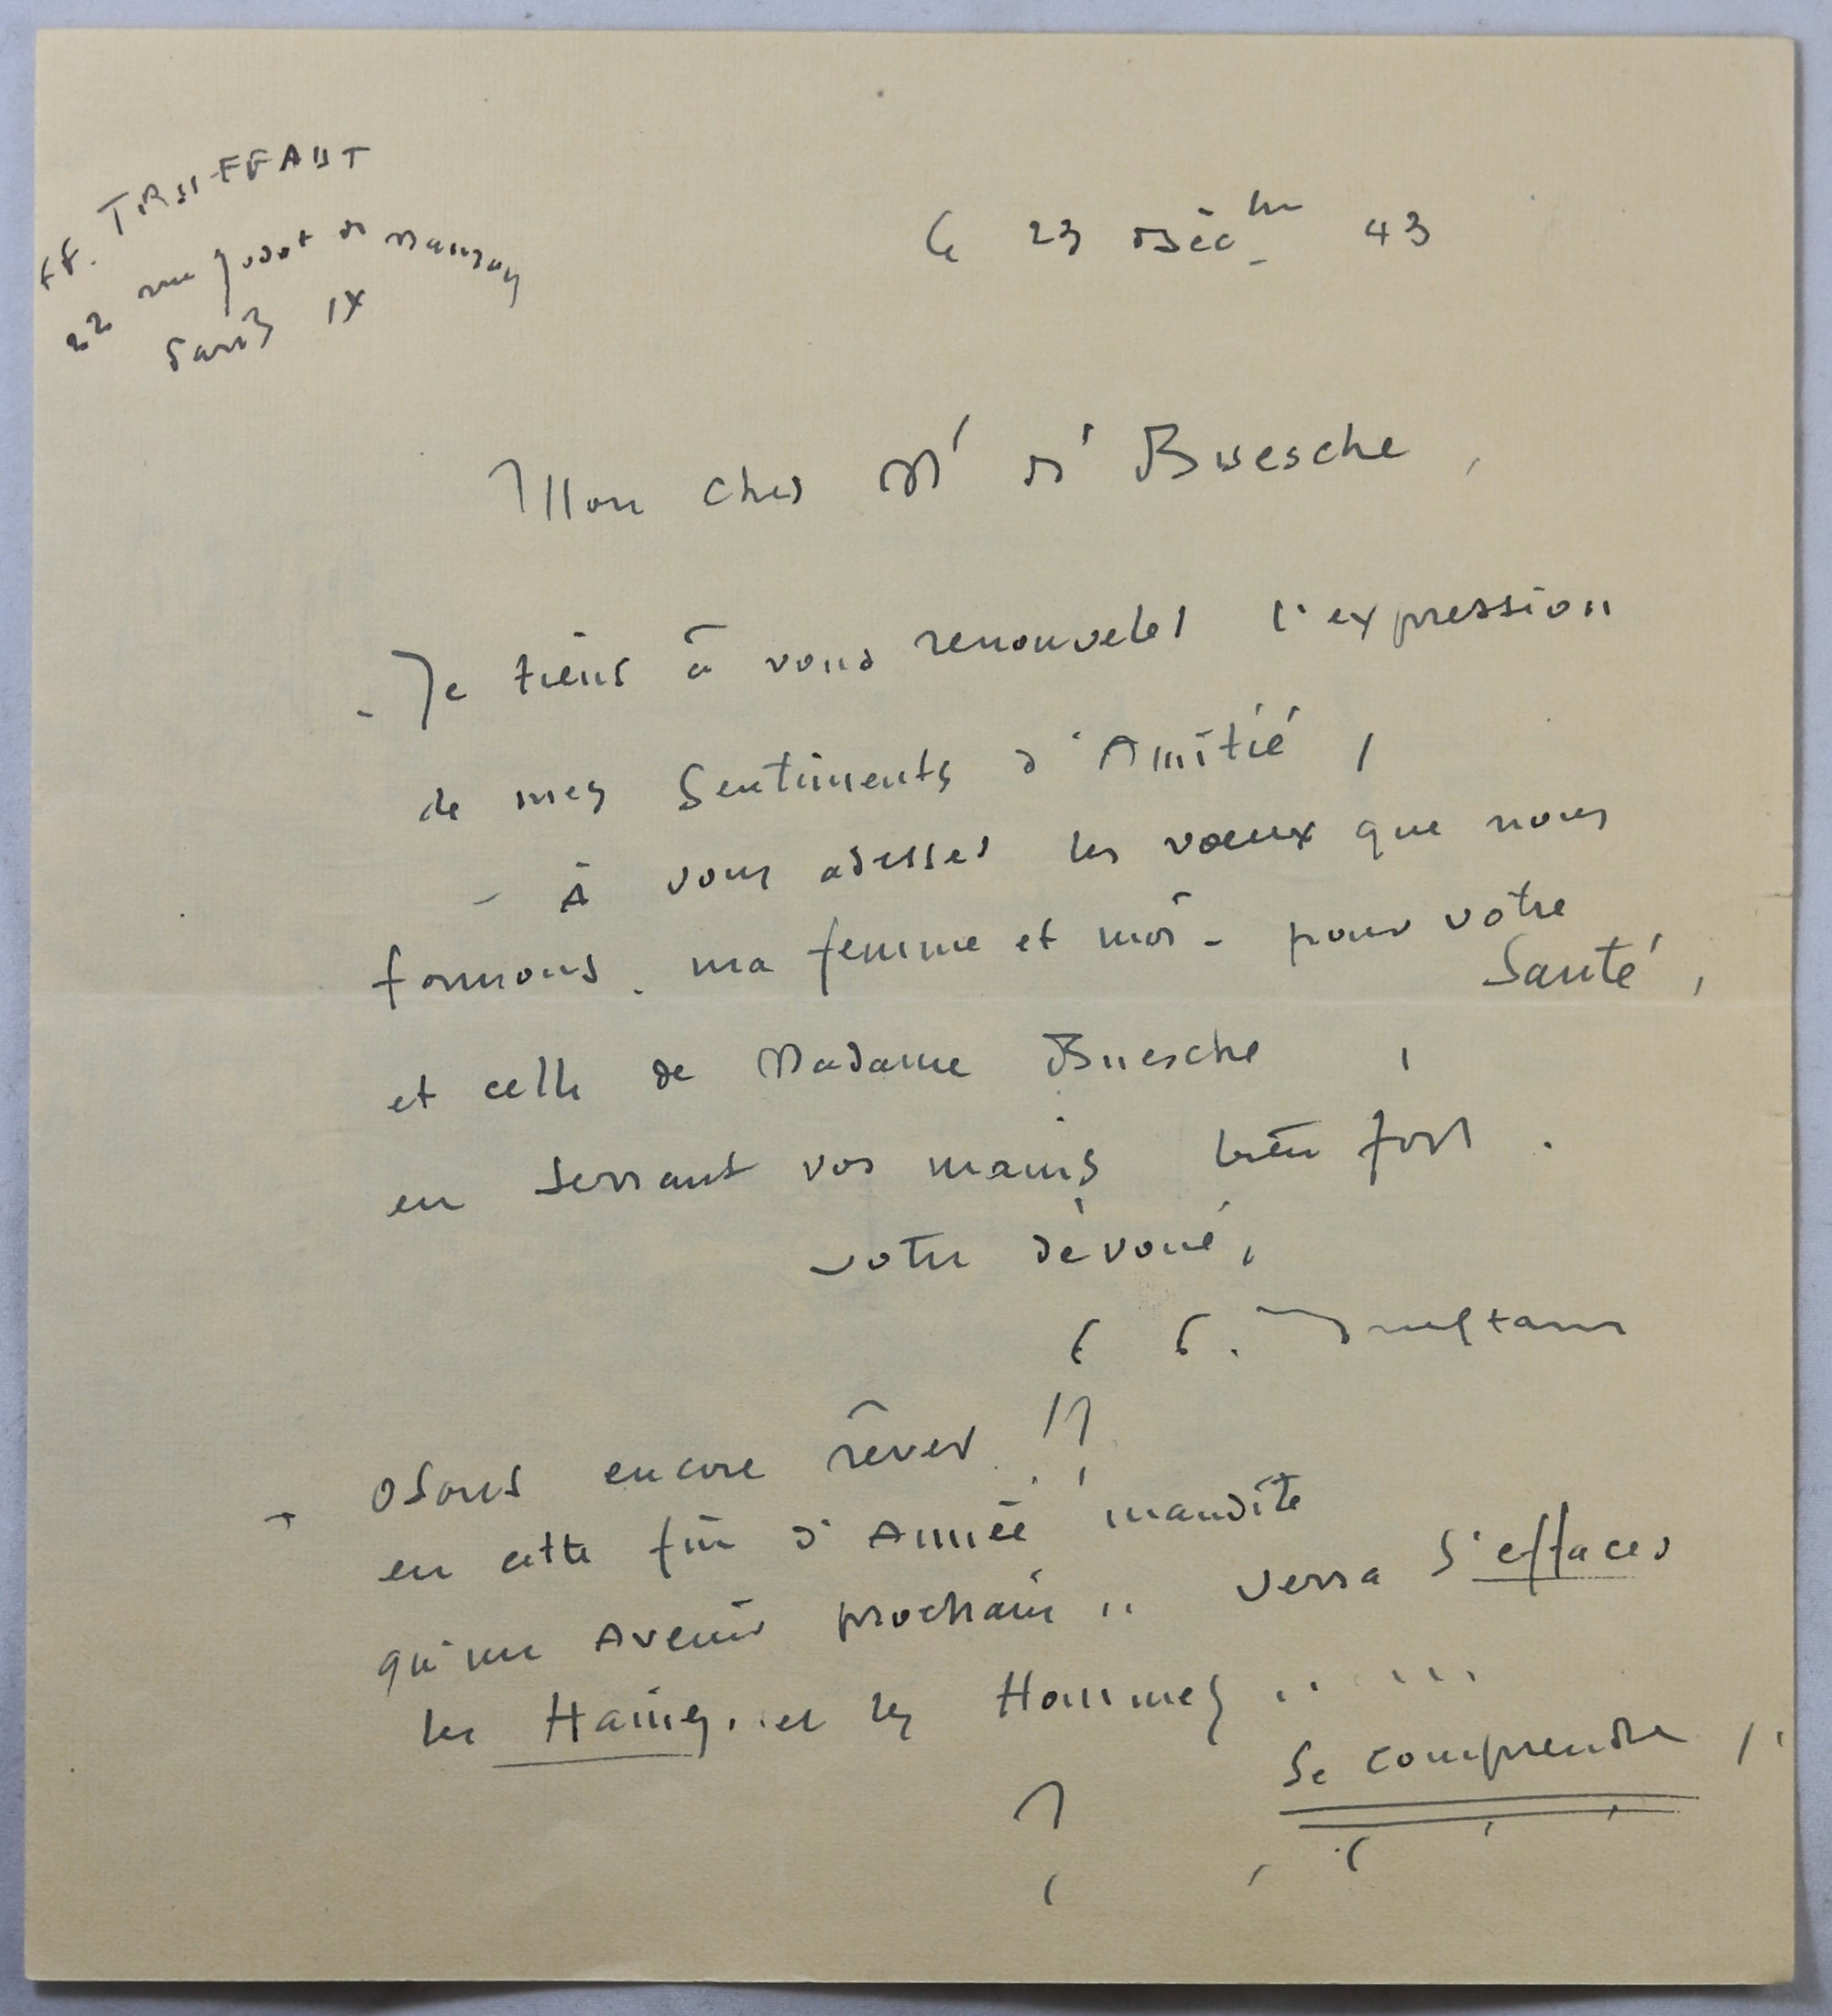 TRUFFAUT
22 rue Godot de Mauroy
Paris IX
le 23 Décbre 43
Mon cher Mr Dr Buesche,
- Je tiens à vous renouveler l'expression
de mes Sentiments d'Amitié,
- À vous adresser les vœux que nous
formons - ma femme et moi - pour votre
Santé,
et celle de Madame Buesche,
en serrant vos mains bien fort.
votre dévoué,
- Osons encore rêver !?
en cette fin d'Année maudite
qu'un Avenir prochain .. verra s'effacer
les Haines .. et les Hommes .. ...
se comprendre !.
?